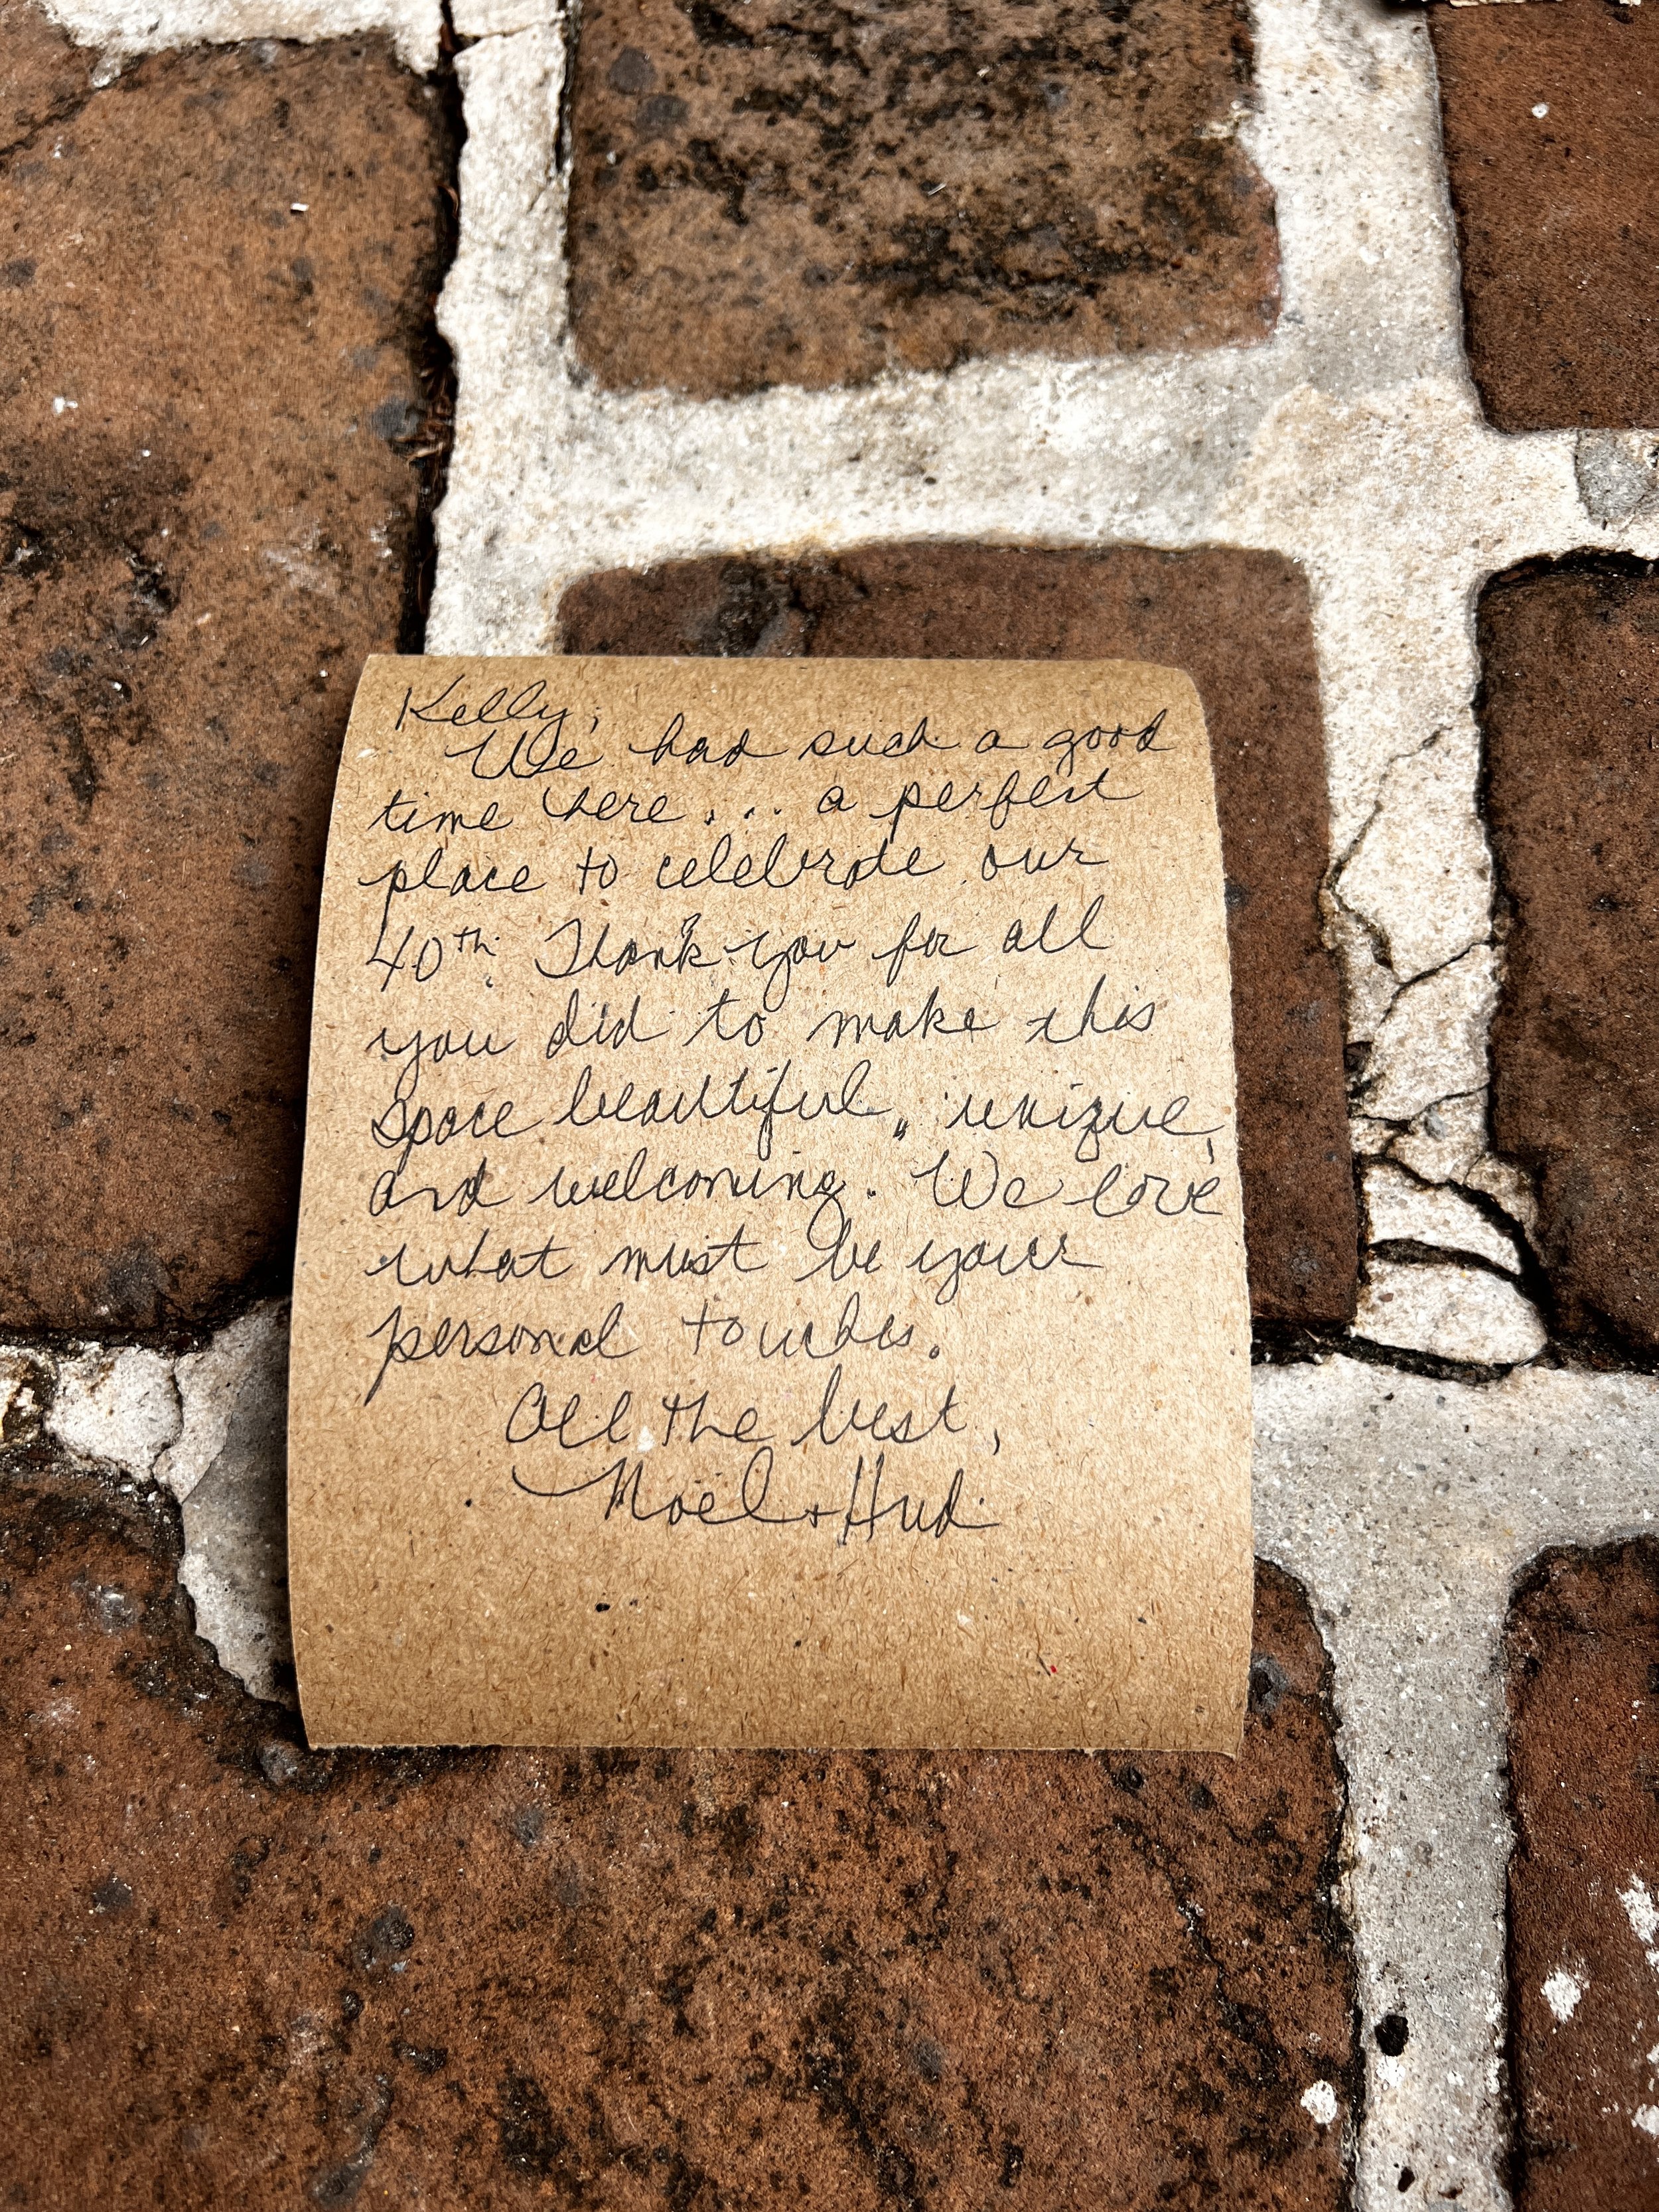 Kelly,
We had such a good
time here... a perfect
place to celebrate our
40th. Thank you for all
you did to make this
space beautiful, unique,
and welcoming. We love
what must be your
personal touches.
All the best,
Noël + Hud